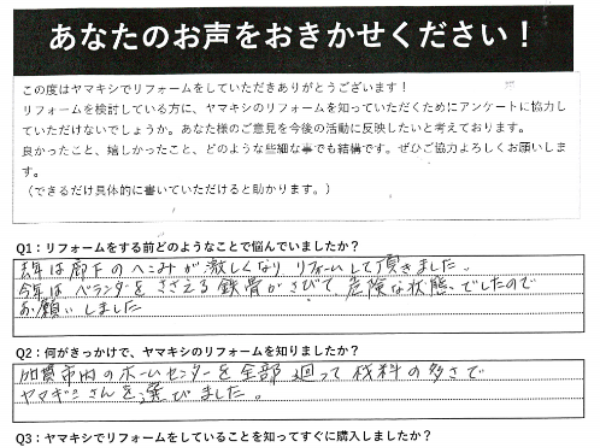 あなたのお声をおきかせください！
この度はヤマキシでリフォームをしていただきありがとうございます！
リフォームを検討している方に、ヤマキシのリフォームを知っていただくためにアンケートに協力し
ていただけないでしょうか。あなた様のご意見を今後の活動に反映したいと考えております。
良かったこと、嬉しかったこと、どのような些細な事でも結構です。ぜひご協力よろしくお願いしま
す。
（できるだけ具体的に書いていただけると助かります。）
Q1：リフォームをする前どのようなことで悩んでいましたか？
去年は廊下のへこみが激しくなりリフォームして頂きました。
今年はベランダをささえる鉄骨がさびて、危険な状態でしたので
お願いしました
Q2：何がきっかけで、ヤマキシのリフォームを知りましたか？
加賀市内のホームセンターを全部廻って材料の多さで
ヤマキシさんを選びました。
Q3：ヤマキシでリフォームをしていることを知ってすぐに購入しましたか？